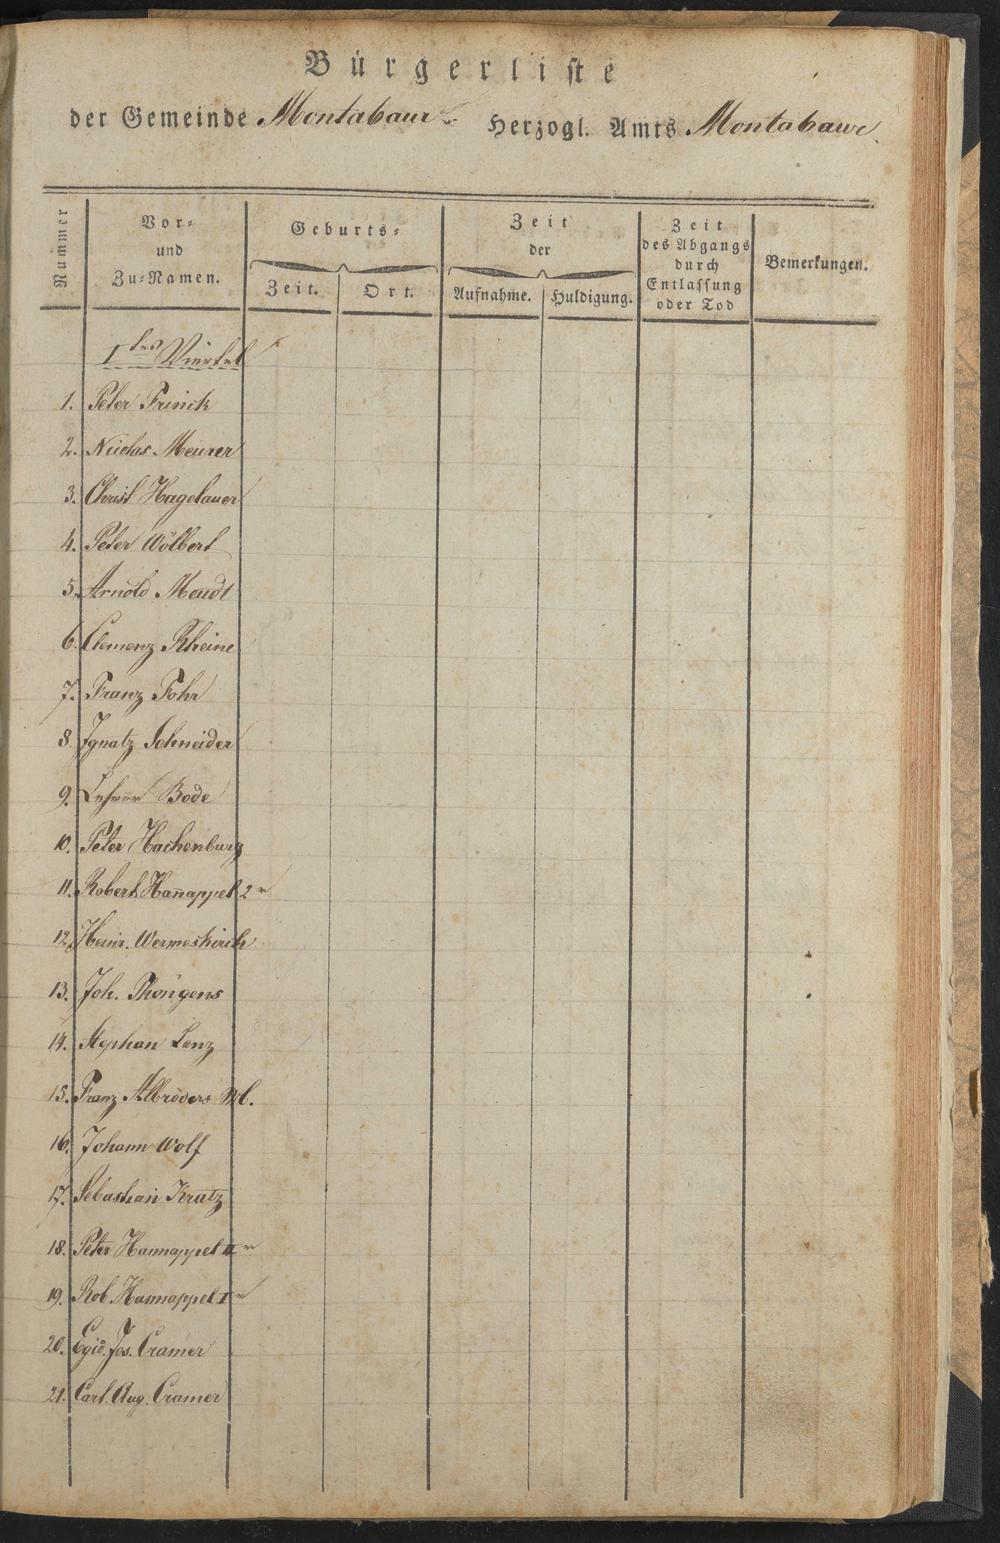 Bürgerliste
der Gemeinde Montabaur Herzogl. Amts Montabaur
Nummer
Vor-
und
Zu-Namen.
Geburts-
Zeit.
Ort.
Zeit
der
Aufnahme.
Huldigung.
Zeit
des Abgangs
durch
Entlassung
oder Tod
Bemerkungen.
I tes Viertel
1. Peter Frinck
2. Nicolas Meurer
3. Christ Hagelauer
4. Peter Wölbert
5. Arnold Meudt
6. Clemenz Rheine
7. Franz Fohr
8. Ignatz Schneider
9. Lehrer Bode
10. Peter Hachenburg
11. Robert Hanappel 2r
12. Heinr. Wermeskirch
13. Joh. Thöngens
14. Stephan Lenz
15. Franz Albröders
16. Johann Wolf
17. Sebastian Kratz
18. Peter Hannappel IIr
19. Rob. Hannappel Ir
20. Egid. Jos. Cramer
21. Carl Aug. Cramer